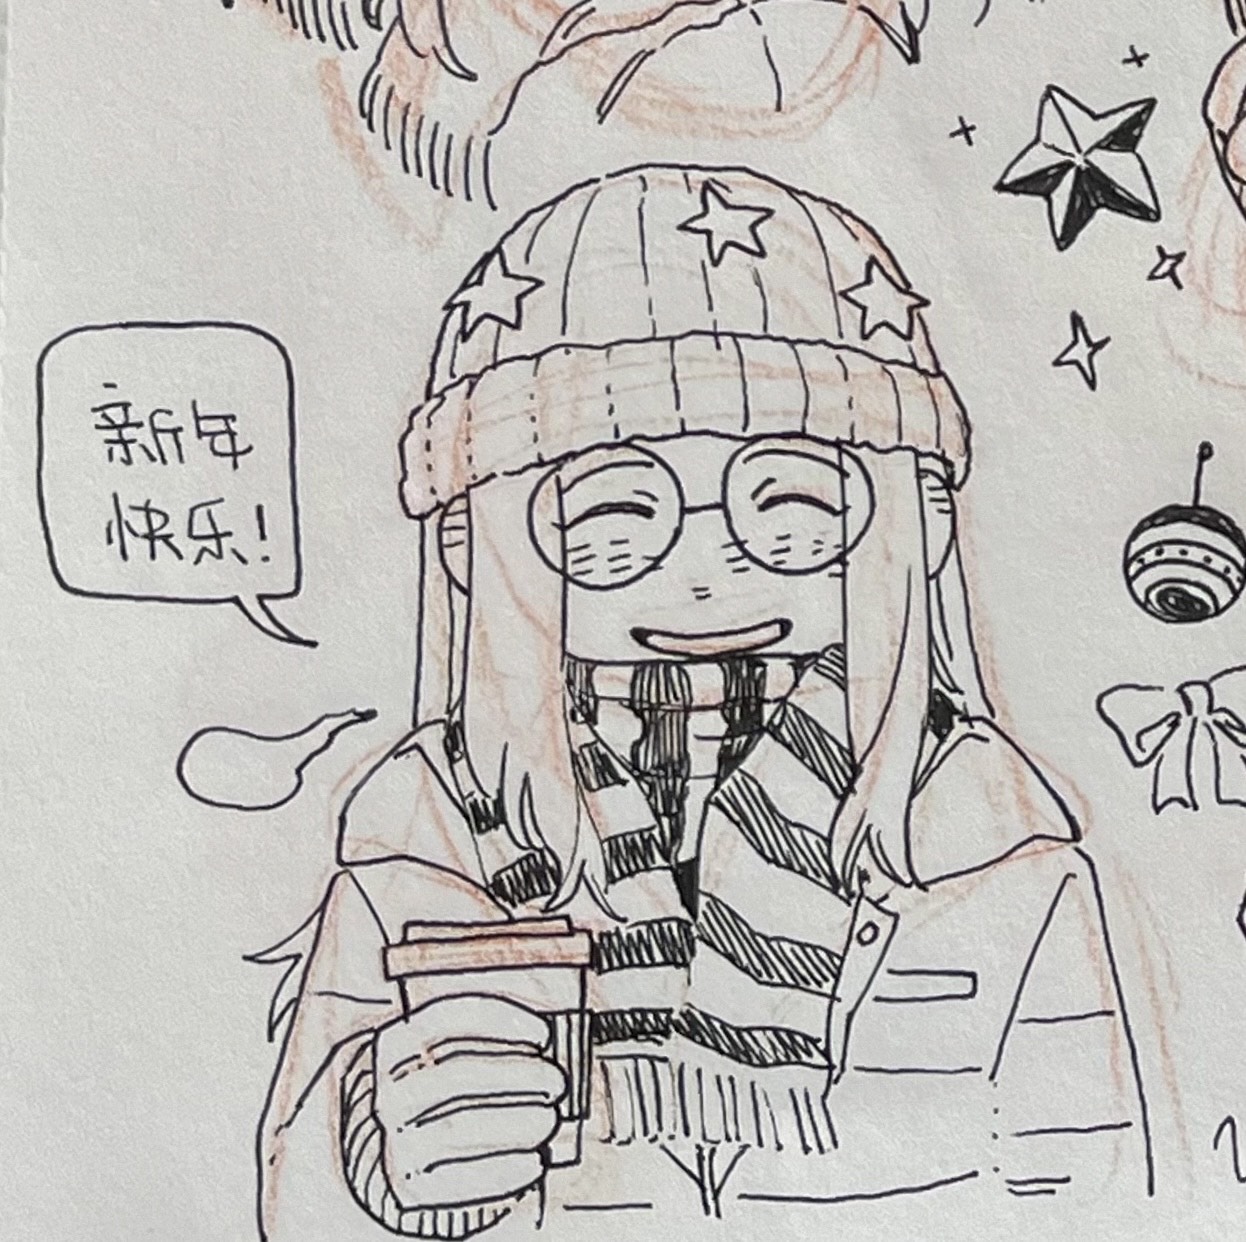 新年
快乐!